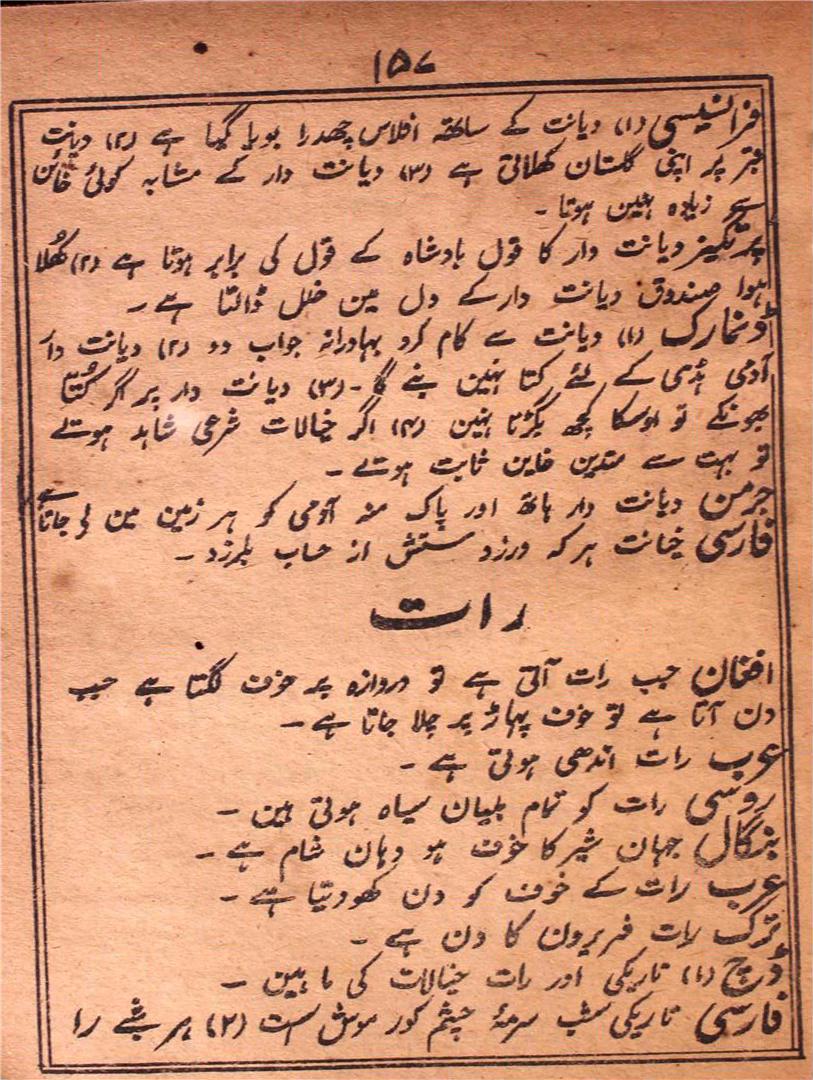 ۱۵۷
فرانسیسی (۱) دیانت کے ساتھ افلاس چھدرا بویا گیا ہے (۲) دیانت
قبر پر اپنی گلستان کھلاتی ہے (۳) دیانت دار کے مشابہ کوئی خائن
سے زیادہ نہین ہوتا۔
پرتگیز دیانت دار کا قول بادشاہ کے قول کی برابر ہوتا ہے (۲) کھُلا
ہوا صندوق دیانت دار کے دل مین خلل ڈالتا ہے۔
ڈنمارک (۱) دیانت سے کام کرو بہادرانہ جواب دو (۲) دیانت دار
آدمی ہڈی کے لئے کتا نہین بنے گا۔ (۳) دیانت دار پر اگر کُتّا
بھونکے تو اوسکا کچھ بگڑتا نہین (۴) اگر خیالات شرعی شاہد ہوتے
تو بہت سے متدین خاین ثابت ہوتے۔
جرمن دیانت دار ہاتھ اور پاک منہ آدمی کو ہر زمین مین لی جاتا ہے
فارسی خیانت ہر کہ ورزد دستش از حساب بلرزد۔
رات
افغان جب رات آتی ہے تو دروازہ پر خوف لگتا ہے جب
دن آتا ہے تو خوف پہاڑ پر چلا جاتا ہے۔
عرب رات اندھی ہوتی ہے۔
روسی رات کو تمام بلیان سیاہ ہوتی ہین۔
بنگال جہان شیر کا خوف ہو وہان شام ہے۔
عرب رات کے خوف کو دن کھو دیتا ہے۔
ترک رات فریرون کا دن ہے۔
ڈرچ (۱) تاریکی اور رات خیالات کی ما ہین۔
فارسی تاریکی شب سرمۂ چشم کور موش ست (۲) ہر شبے را